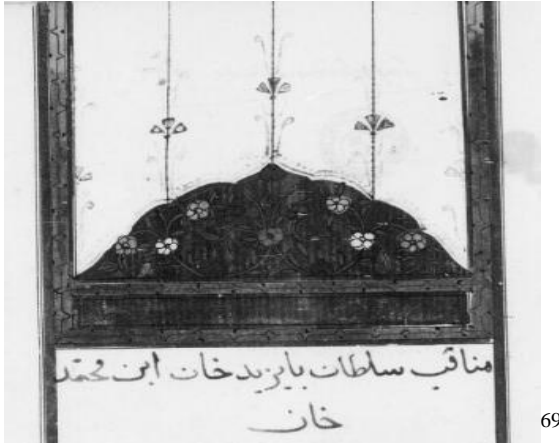 مناقب سلطان بايزيد خان ابن محمّد
خان
69